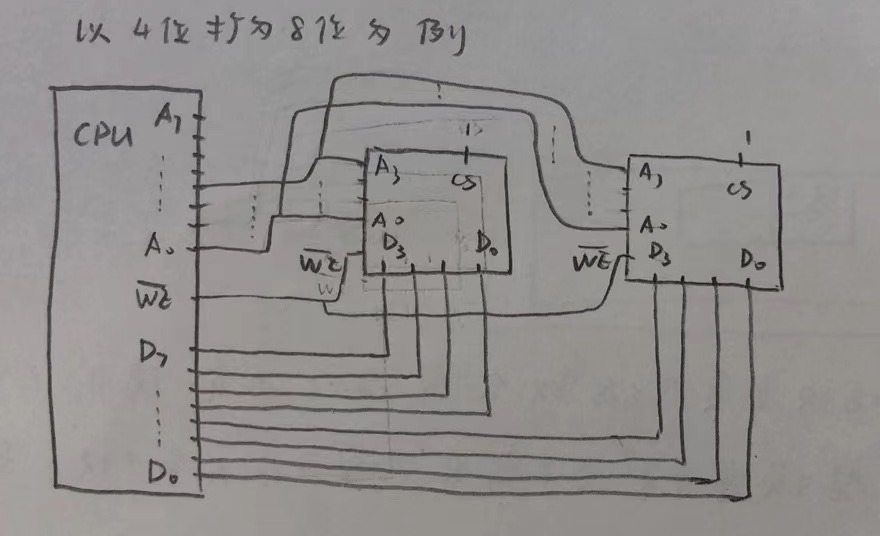 以 4 位扩为 8 位为例
CPU
A₇
A₀
W̅E̅
D₇
D₀
1
A₃
CS
A₀
D₃
D₀
W̅E̅
1
A₃
CS
A₀
D₃
D₀
W̅E̅